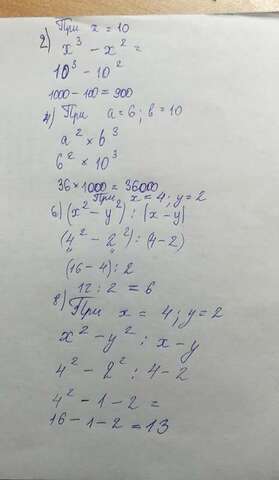 При x = 10
2) x³ - x² =
10³ - 10²
1000 - 100 = 900
4) При a = 6; b = 10
a² × b³
6² × 10³
36 × 1000 = 36000
При x = 4; y = 2
6) (x² - y²) : (x - y)
(4² - 2²) : (4 - 2)
(16 - 4) : 2
12 : 2 = 6
8) При x = 4; y = 2
x² - y² : x - y
4² - 2² : 4 - 2
4² - 1 - 2 =
16 - 1 - 2 = 13